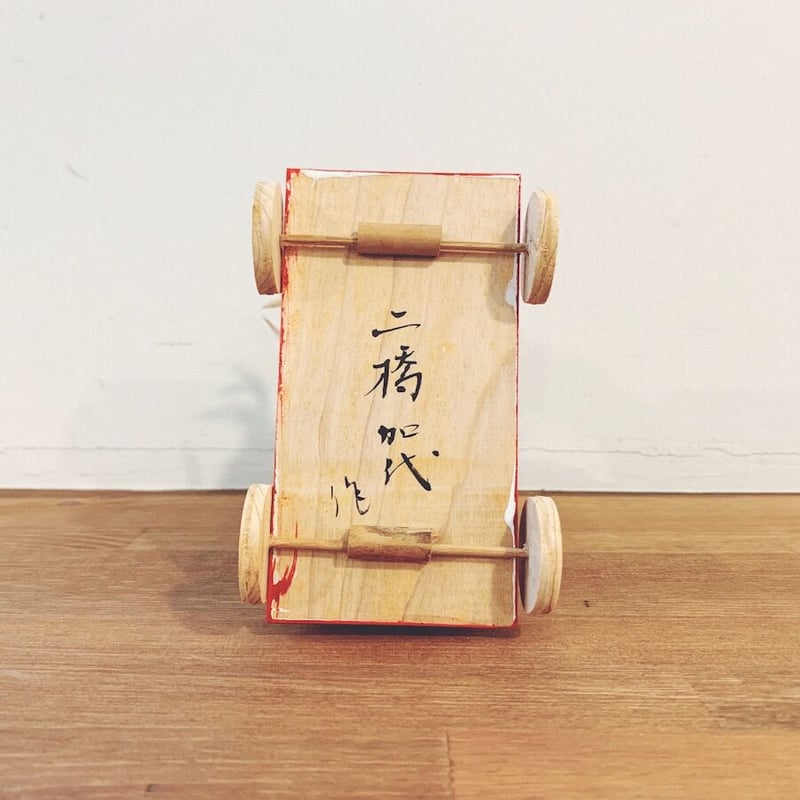 二橋加代
作